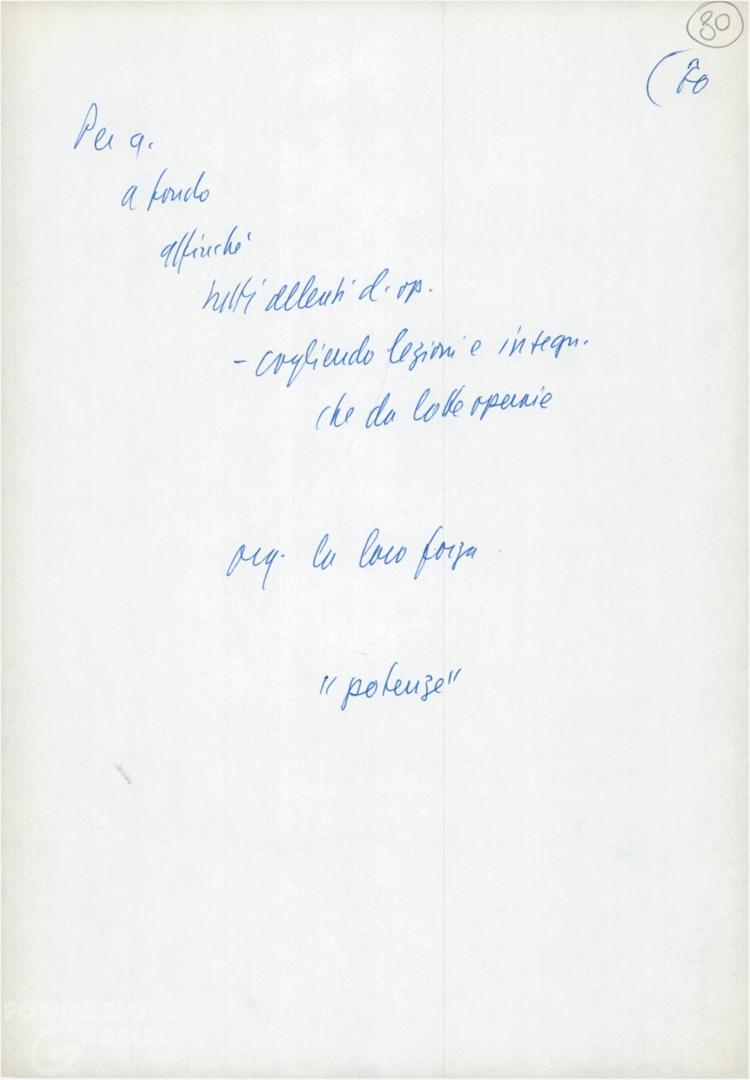 80
Per q.
a fondo
affinché
tutti
- cogliendo lezioni e insegn.
che da lotte operaie
org. la loro forza
"potenze"
FONDAZIONE
GRAMSCI